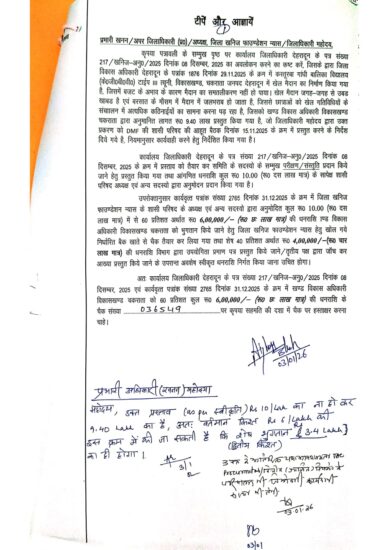 21
टीपें और आज्ञायें
प्रभारी खनन/अपर जिलाधिकारी (प्र0)/अध्यक्ष, जिला खनिज फाउण्डेशन न्यास/जिलाधिकारी महोदय,
कृपया पत्रावली के सम्मुख पृष्ठ पर कार्यालय जिलाधिकारी देहरादून के पत्र संख्या
217/खनिज-अनु0/2025 दिनांक 08 दिसम्बर, 2025 का अवलोकन करने का कष्ट करें, जिसके द्वारा जिला
विकास अधिकारी देहरादून के पत्रांक 1876 दिनांक 29.11.2025 के क्रम में कस्तूरबा गांधी बालिका विद्यालय
टाईप
विकासखण्ड चकराता जनपद देहरादून में खेल मैदान का निर्माण किया गया
है, जिसमें बजट के अभाव के कारण मैदान का समतलीकरण नहीं हो पाया। खेल मैदान जगह-जगह से उबड़
खाबड़ है एवं बरसात के मौसम में मैदान में जलभराव हो जाता है, जिससे छात्राओं को खेल गतिविधियों के
संचालन में अत्यधिक कठिनाईयों का सामना करना पड़ रहा है, जिसको खण्ड विकास अधिकारी विकासखण्ड
चकराता द्वारा अनुमानित लागत रू0 9.40 लाख प्रस्तुत किया गया है, जो जिलाधिकारी महोदय द्वारा उक्त
प्रकरण को DMF की शासी परिषद की आहूत बैठक दिनांक 15.11.2025 के क्रम में प्रस्तुत करने के निर्देश
दिये गये है, नियमानुसार कार्यवाही करने हेतु निर्देशित किया गया है।
कार्यालय जिलाधिकारी देहरादून के पत्र संख्या 217/खनिज-अनु0/2025 दिनांक 08
दिसम्बर, 2025 के क्रम में प्रस्ताव को तैयार कर समिति के सदस्यों के सम्मुख परीक्षण/संस्तुति प्रदान किये
जाने हेतु प्रस्तुत किया गया तथा आंगणित धनराशि कुल रू0 10.00 (दस लाख मात्र) के सापेक्ष शासी
परिषद अध्यक्ष एवं अन्य सदस्यों द्वारा अनुमोदन प्रदान किया गया है।
उपरोक्तानुसार कार्यवृत पत्रांक संख्या 2765 दिनांक 31.12.2025 के क्रम में जिला खनिज
फाउण्डेशन न्यास के शासी परिषद के अध्यक्ष एवं अन्य सदस्यों द्वारा अनुमोदित कुल रू0 10.00 (रू0 दस
लाख मात्र) में से 60 प्रतिशत अर्थात रू0 6,00,000/- (रू0 छः लाख मात्र) की धनराशि खण्ड विकास
अधिकारी विकासखण्ड चकराता को भुगतान किये जाने हेतु जिला खनिज फाउण्डेशन न्यास हेतु खोले गये
निर्धारित बैंक खाते से चैक तैयार कर लिया गया तथा शेष 40 प्रतिशत अर्थात रू0 4,00,000/-(रू0 चार
लाख मात्र) की धनराशि विभाग द्वारा उपयोगिता प्रमाण पत्र प्रस्तुत किये जाने/तृतीय पक्ष द्वारा जाँच कर
आख्या प्रस्तुत किये जाने के उपरान्त अवशेष स्वीकृत धनराशि निर्गत किया जाना उचित होगा।
अतः कार्यालय जिलाधिकारी देहरादून के पत्र संख्या 217/खनिज-अनु0/2025 दिनांक 08
दिसम्बर, 2025 एवं कार्यवृत पत्रांक संख्या 2765 दिनांक 31.12.2025 के क्रम में खण्ड विकास अधिकारी
विकासखण्ड चकराता को 60 प्रतिशत कुल रू0 6,00,000/- (रू0 छः लाख मात्र) की धनराशि के
चैक संख्या 036549 पर कृपया सहमति की दशा में चैक पर हस्ताक्षर करना
चाहें।
03/01/26
प्रभारी अधिकारी (खनन) महोदया
महोदय, उक्त प्रस्ताव Rs 10/Lakh का ना हो कर
9.40 Lakh का है, अतः वर्तमान किश्त Rs 6/Lakh की
इस क्रम में की जा सकती है कि शेष भुगतान 3.4 Lakh
(द्वितीय किश्त)
का ही होगा।
3/1
03.01.26
03/01